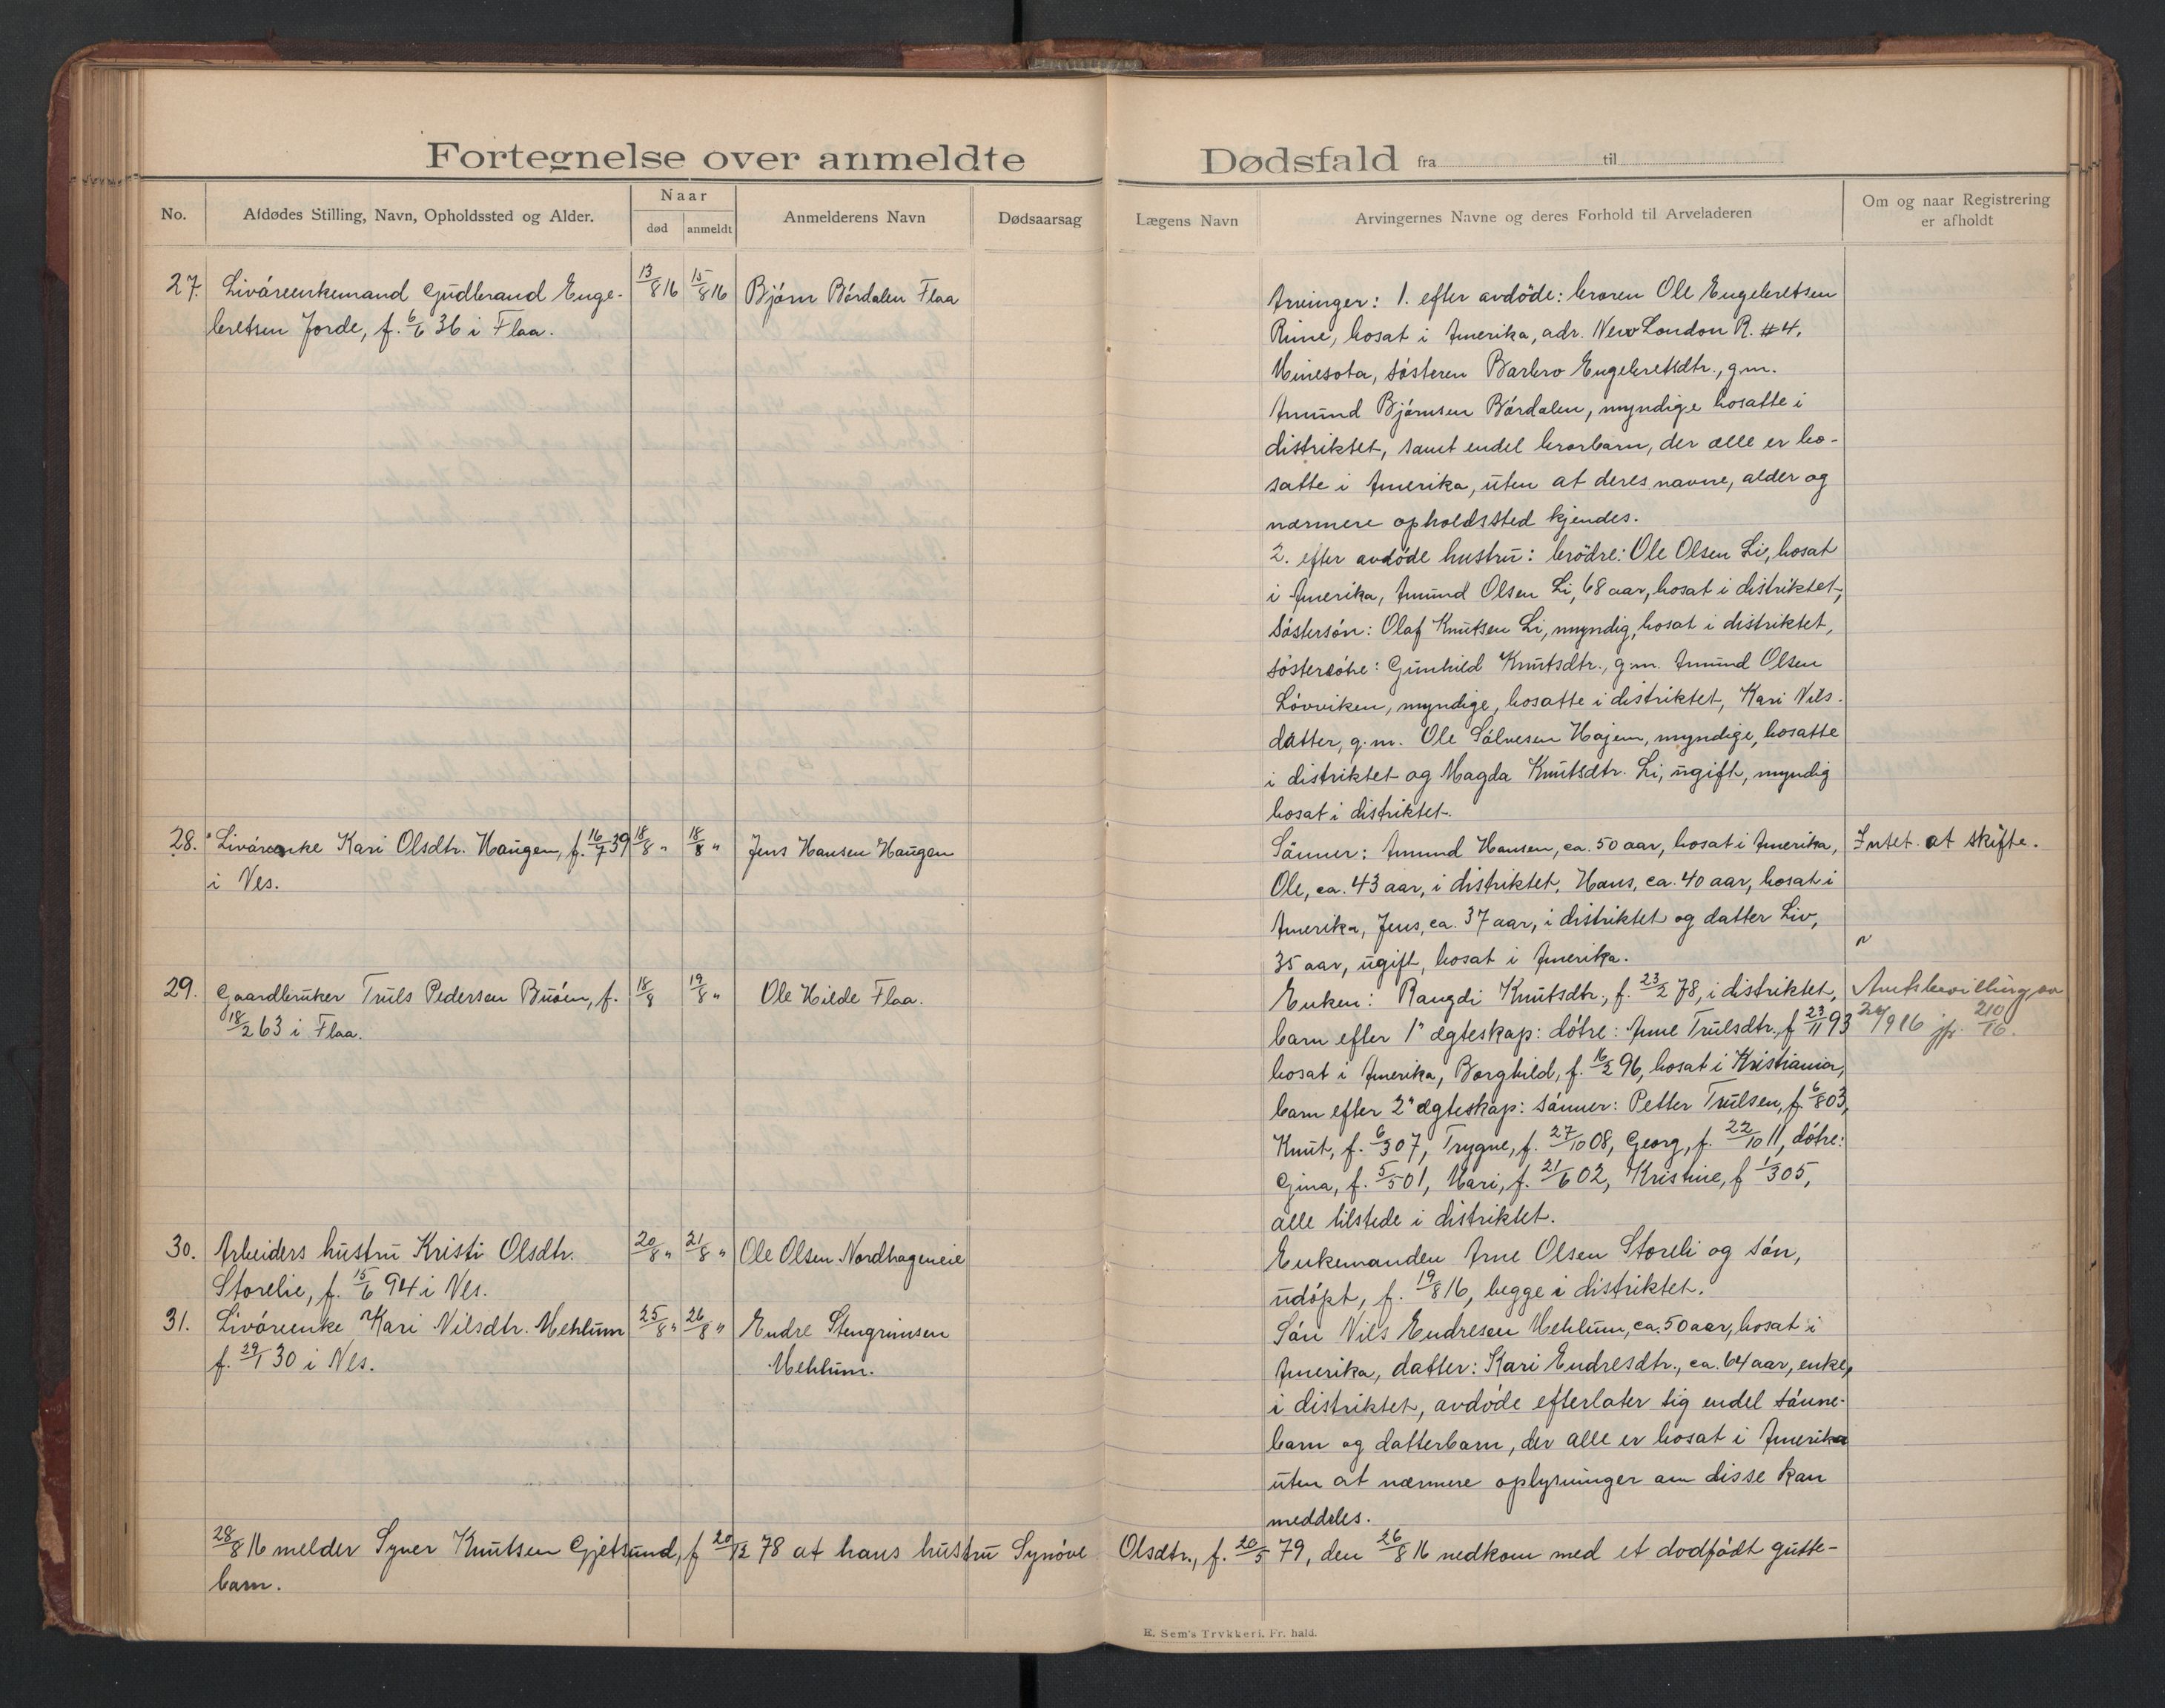 Fortegnelse over anmeldte Dødsfald fra til
No.
Afdødes Stilling, Navn, Opholdssted og Alder.
Naar
død
anmeldt
Anmelderens Navn
Dødsaarsag
Lægens Navn
Arvingernes Navne og deres Forhold til Arveladeren
Om og naar Registrering
er afholdt
27. Livöreenkemand Gudbrand Enge-
bretsen Jorde, f. 6/6 36 i Flaa.
13/8 16
15/8 16
Bjørn Bördalen Flaa
Arvinger: 1. efter avdöde: broren Ole Engebretsen
Rime, bosat i Amerika, adr. New London R. #4.
Minesota, sösteren Barbro Engebretsdtr., g.m.
Amund Björnsen Bördalen, myndige bosatte i
distriktet, samt endel brorbarn, der alle er bo-
satte i Amerika, uten at deres navne, alder og
nærmere opholdssted kjendes.
2. efter avdöde hustru: brödre: Ole Olsen Li, bosat
i Amerika, Amund Olsen Li, 68 aar, bosat i distriktet,
Söstersön: Olaf Knutsen Li, myndig, bosat i distriktet,
sösterdötre: Gunhild Knutsdtr., g.m. Amund Olsen
Lövviken, myndige, bosatte i distriktet, Kari Nils-
datter, g.m. Ole Sälvesen Hajem, myndige, bosatte
i distriktet og Magda Knutsdtr. Li, ugift, myndig
bosat i distriktet.
28. Livöreenke Kari Olsdtr. Haugen, f. 16/7 39
i Nes.
18/8 "
18/8 "
Jens Hansen Haugen
Sönner: Amund Hansen, ca. 50 aar, bosat i Amerika,
Ole, ca. 43 aar, i distriktet, Hans, ca. 40 aar, bosat i
Amerika, Jens, ca. 37 aar, i distriktet og datter Liv,
35 aar, ugift, bosat i Amerika.
Intet at skifte.
29. Gaardbruker Truls Pedersen Buöen, f.
18/2 63 i Flaa.
18/8
19/8 "
Ole Hilde Flaa.
Enken: Rangdi Knutsdtr., f. 23/2 78, i distriktet,
barn efter 1" ægteskap: dötre: Anne Trulsdtr., f 23/11 93
bosat i Amerika, Borghild, f. 16/2 96, bosat i Kristiania,
barn efter 2" ægteskap: sönner: Petter Trulsen, f. 6/8 03,
Knut, f. 6/3 07, Trygve, f. 27/10 08, Georg, f. 22/10 11, dötre:
Gina, f. 5/5 01, Mari, f. 21/6 02, Kristine, f 1/3 05,
alle tilstede i distriktet.
Amtsbevilling av
24/9 16 jfr. 210/16.
30. Arbeiders hustru Kristi Olsdtr.
Storelie, f. 15/6 94 i Nes.
20/8 "
21/8 "
Ole Olsen Nordhageneie
Enkemanden Arne Olsen Storeli og sön,
udöpt, f. 19/8 16, begge i distriktet.
31. Livöreenke Kari Nilsdtr. Mehlum
f. 29/1 30 i Nes.
25/8 "
26/8 "
Endre Stengrimsen
Mehlum.
Sön Nils Endresen Mehlum, ca. 50 aar, bosat i
Amerika, datter: Kari Endresdtr., ca. 64 aar, enke,
i distriktet, avdöde efterlater sig endel sönne-
barn og datterbarn, der alle er bosat i Amerika
uten at nærmere oplysninger om disse kan
meddeles.
28/8 16 melder Syver Knutsen Gjetsund, f 20/12 78 at hans hustru Synöve Olsdtr., f. 20/5 79, den 26/8 16 nedkom med et dodfödt gutte-
barn.
E. Sem's Trykkeri. Fr. hald.